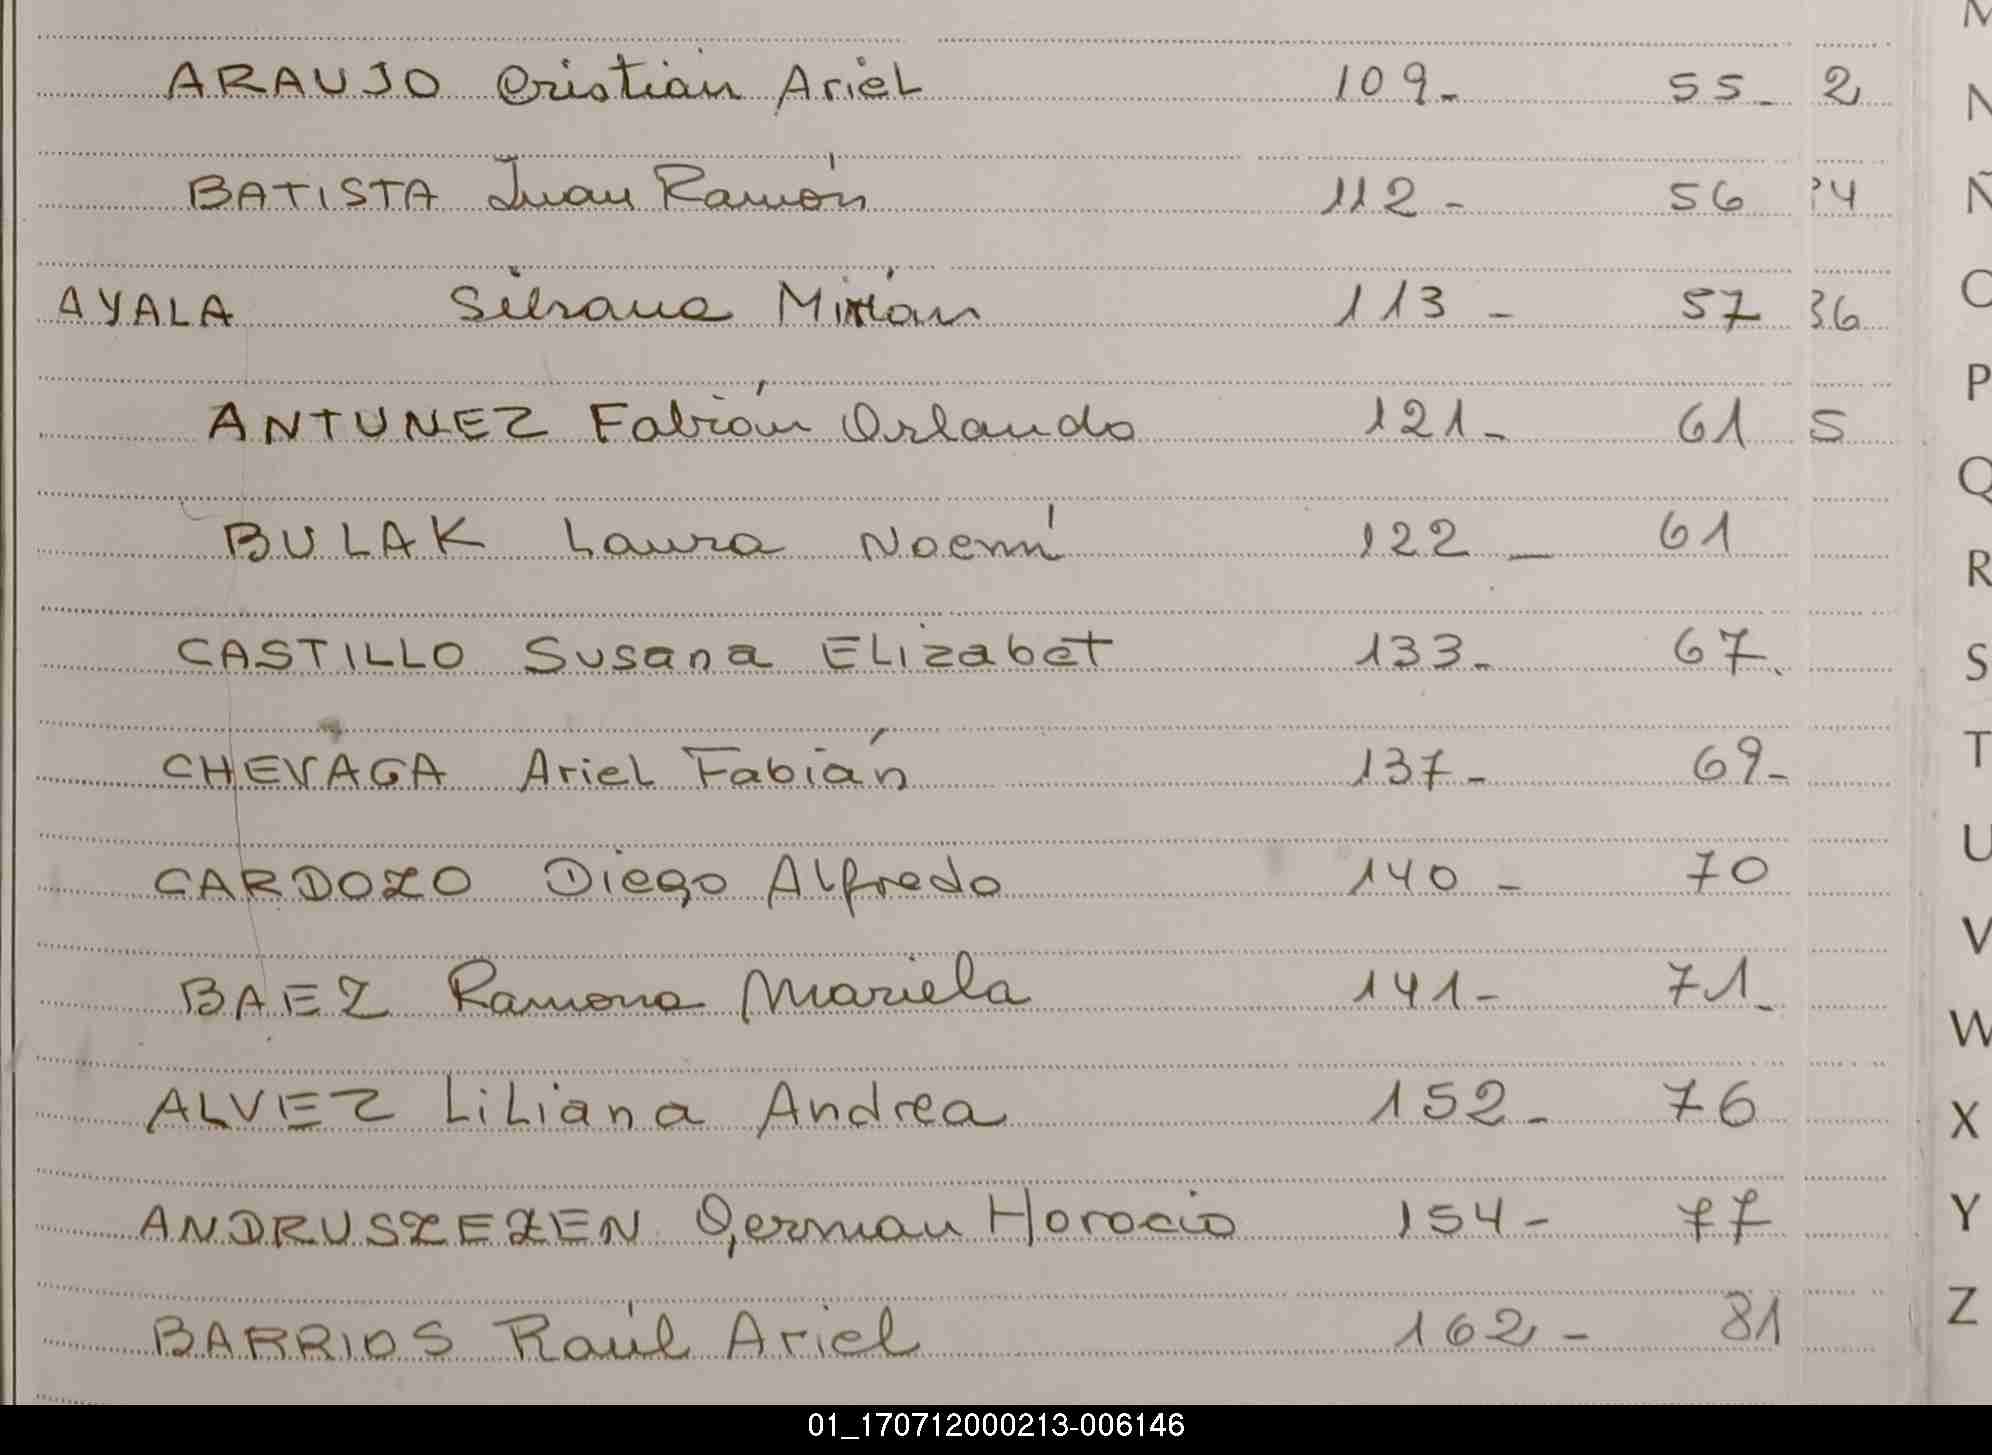 ARAUJO Cristian Ariel 109- 55- 2
BATISTA Juan Ramón 112- 56 24
AYALA Silvana Mirian 113- 57 36
ANTUNEZ Fabián Orlando 121- 61 5
BULAK Laura Noemí 122- 61
CASTILLO Susana Elizabet 133- 67.
CHEVAGA Ariel Fabián 137- 69-
CARDOZO Diego Alfredo 140- 70
BAEZ Ramona Mariela 141- 71-
ALVEZ Liliana Andrea 152- 76
ANDRUSZEZEN German Horacio 154- 77
BARRIOS Raúl Ariel 162- 81
N
Ñ
O
P
Q
R
S
T
U
V
W
X
Y
Z
01_170712000213-006146